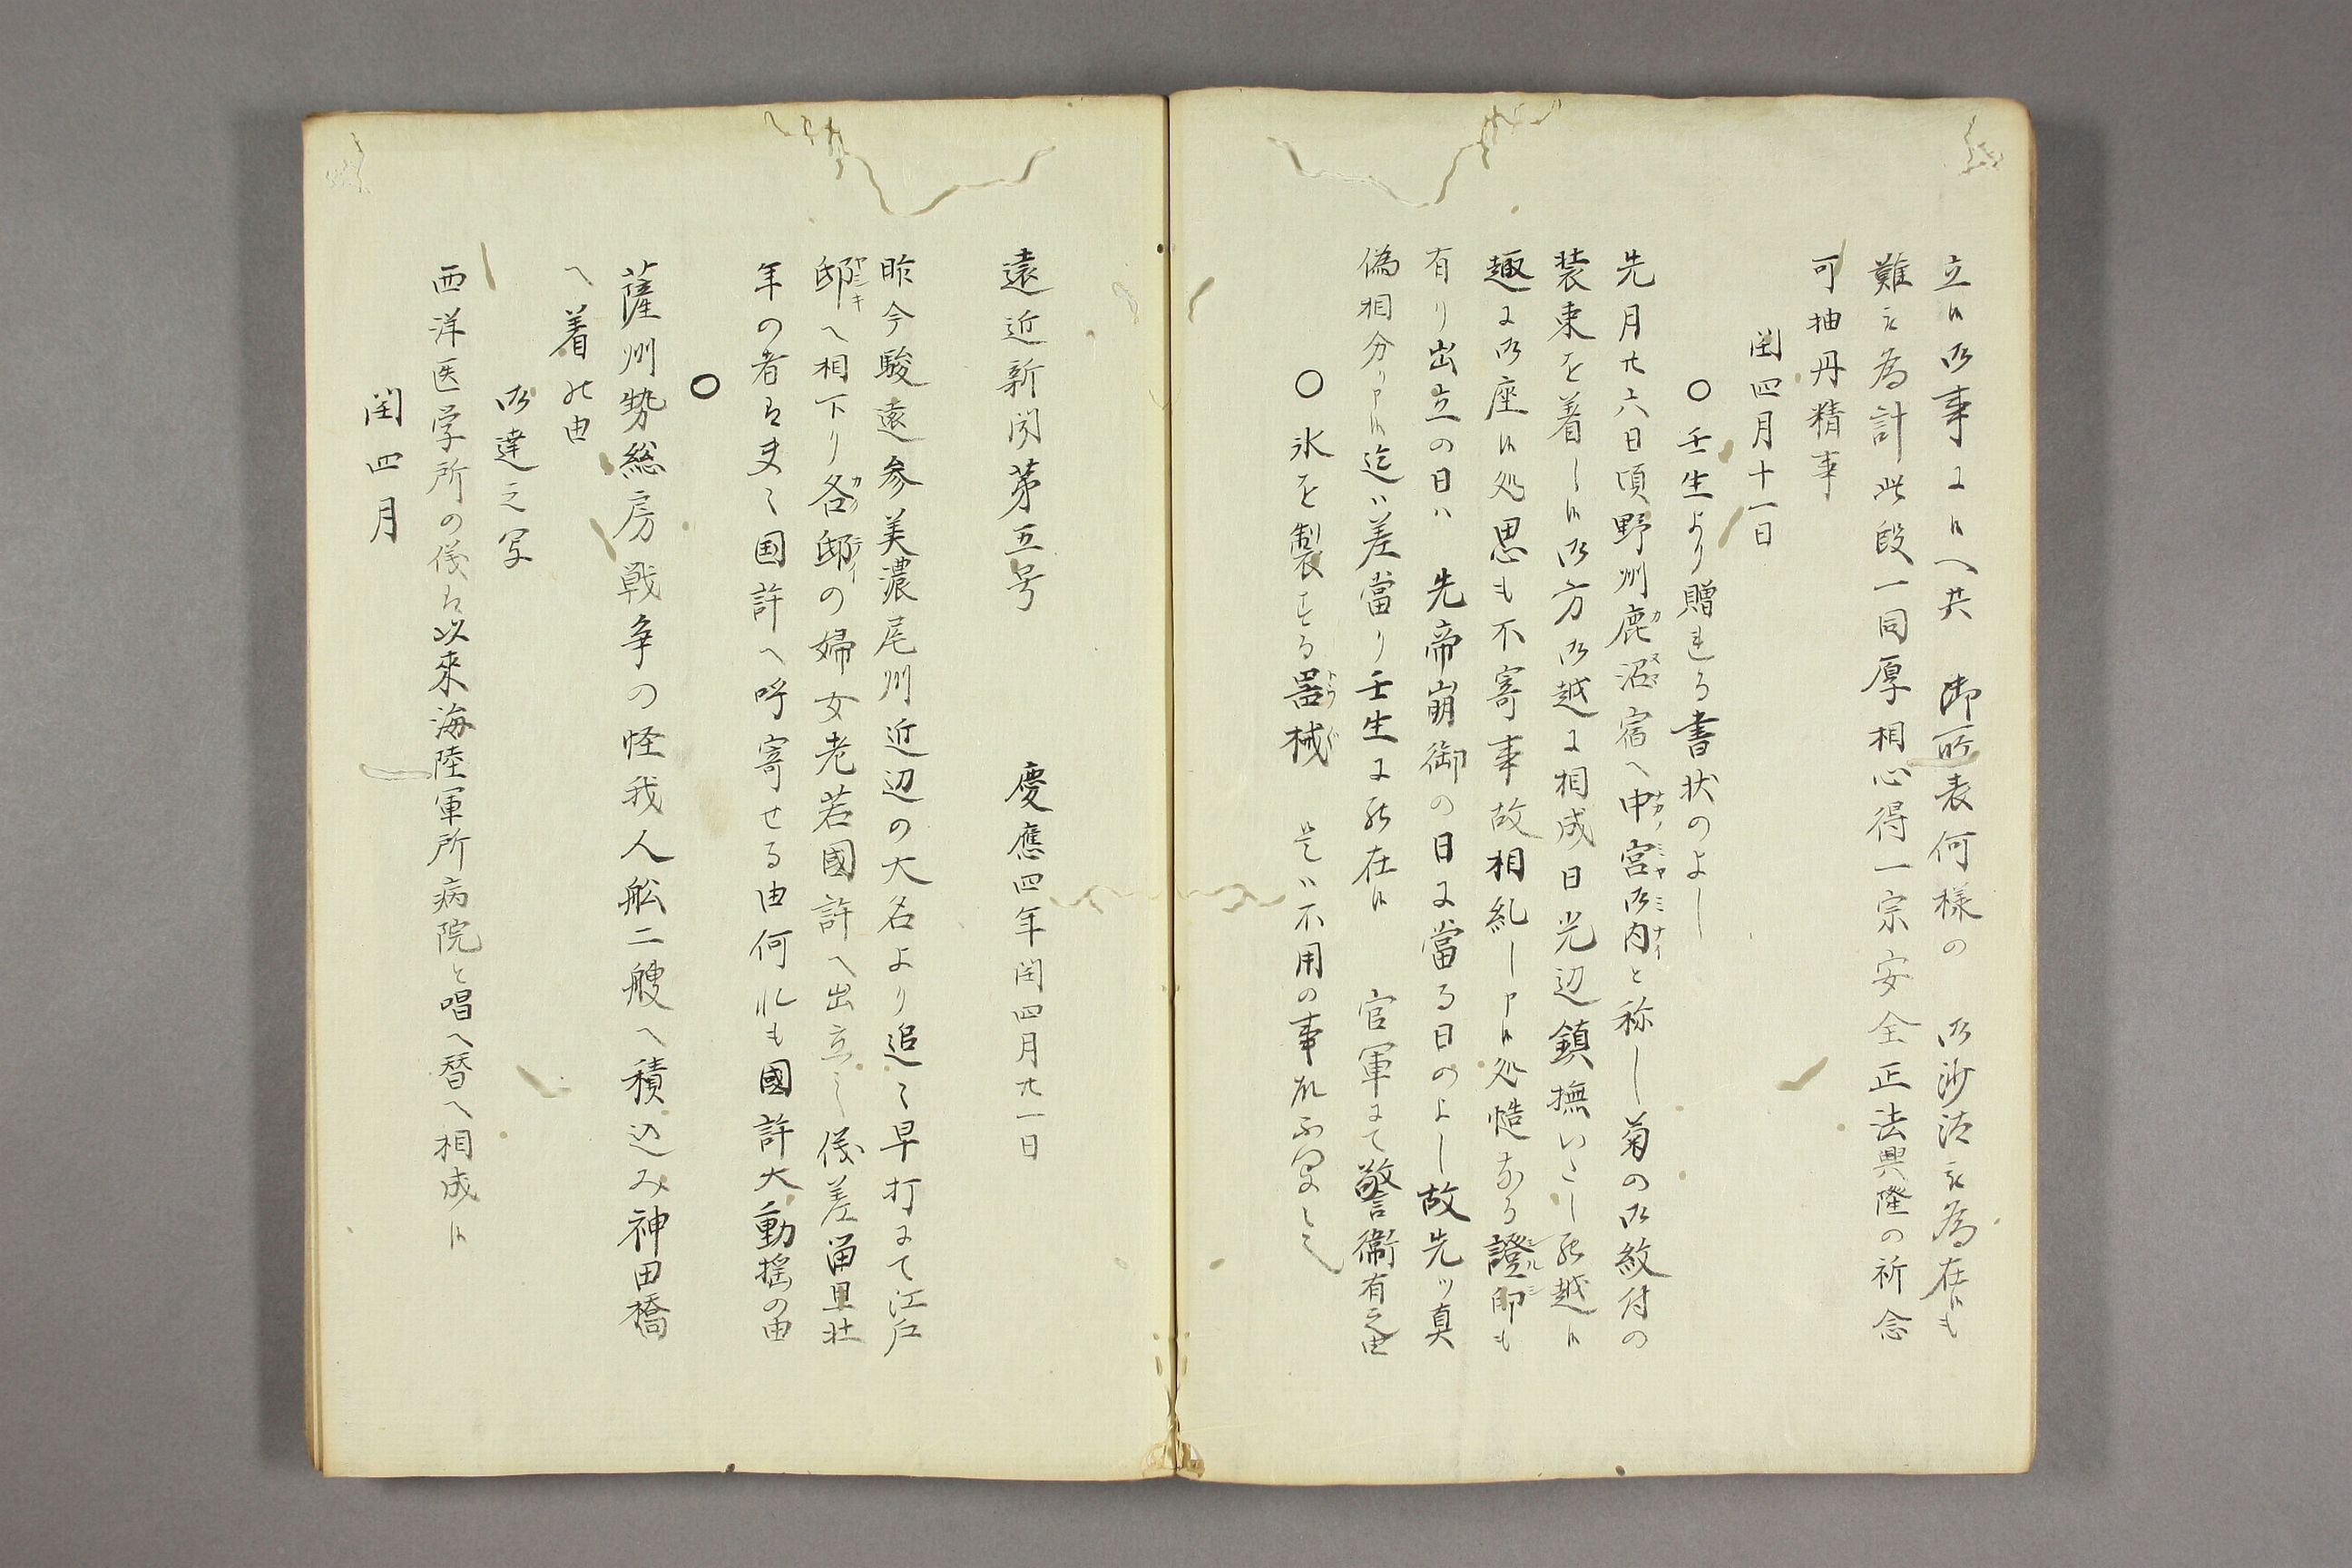 立候御事に候へ共　御所表何様の　御沙汰被為在候も
難被為計此段一同厚相心得一宗安全正法興隆の祈念
可抽丹精事
閏四月十一日
〇壬生より贈れる書状のよし
先月廿六日頃野州鹿沼宿へ中宮御内と称し菊の御紋付の
装束を着し候御方御越に相成日光辺鎮撫いたし罷越候
趣に御座候処思も不寄事故相糺し申候処慥なる證印も
有り出立の日ハ　先帝崩御の日に當る日のよし故先ッ真
偽相分り申候迄ハ差當り壬生に罷在候　官軍にて警衛有之由
〇氷を製せる器械　是ハ不用の事故不写之
遠近新聞第五号　慶應四年閏四月廿一日
昨今駿遠参美濃尾州近辺の大名より追々早打にて江戸
邸へ相下り各邸の婦女老若國許へ出立之儀差留且壮
年の者ハ早々国許へ呼寄せる由何れも國許大動揺の由
〇
薩州勢総房戦争の怪我人舩二艘へ積込み神田橋
へ着の由
御達之写
西洋医学所の儀ハ以来海陸軍所病院と唱へ替へ相成候
閏四月